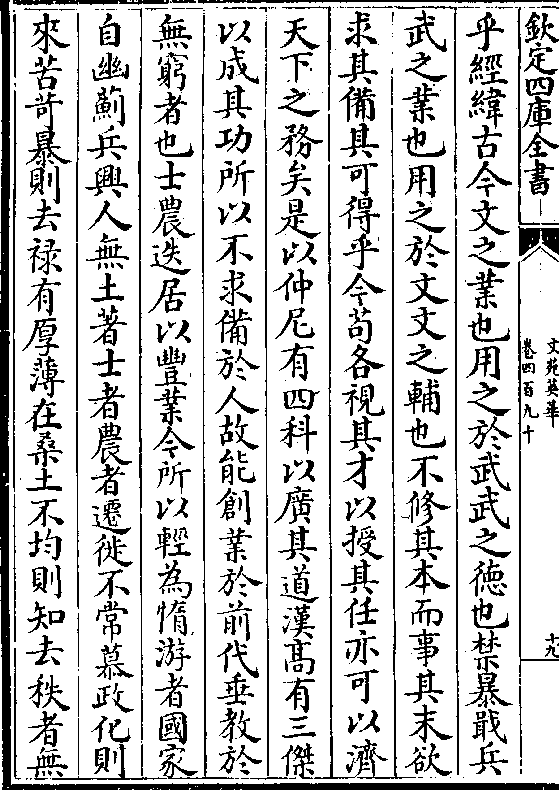 欽定四庫全書
文苑英華
卷四百九十
十九
乎經緯古今文之業也用之於武武之徳也禁暴戢兵
武之業也用之於文文之輔也不修其本而事其末欲
求其備其可得乎今苟各視其才以授其任亦可以濟
天下之務矣是以仲尼有四科以廣其道漢髙有三傑
以成其功所以不求備於人故能創業於前代垂教於
無窮者也士農迭居以豐業今所以輕為惰游者國家
自幽薊兵興人無土著士者農者遷徙不常慕政化則
來苦苛暴則去禄有厚薄在桑土不均則知去秩者無